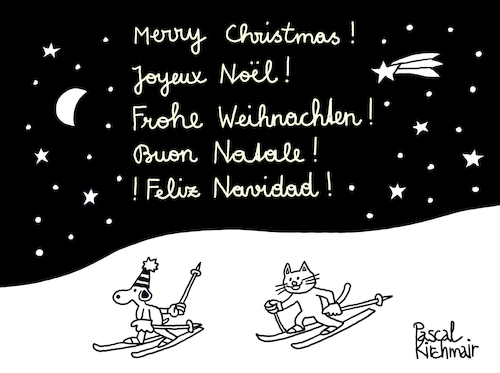 Merry Christmas!
Joyeux Noël!
Frohe Weihnachten!
Buon Natale!
!Feliz Navidad!
Pascal
Kirchmair